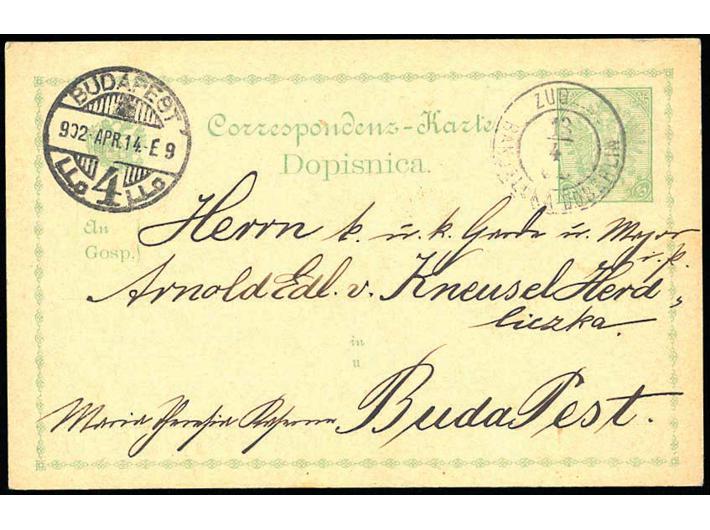 BUDAPEST
902 APR.14. E 9
4
ZUG
13
4
Correspondenz-Karte
Dopisnica.
An
Gosp.
Herrn k. u. k. Garde u. Major
Arnold Edl. v. Kneusel Herd„
liczka.
in
u
Maria Theresia Kaserne BudaPest.